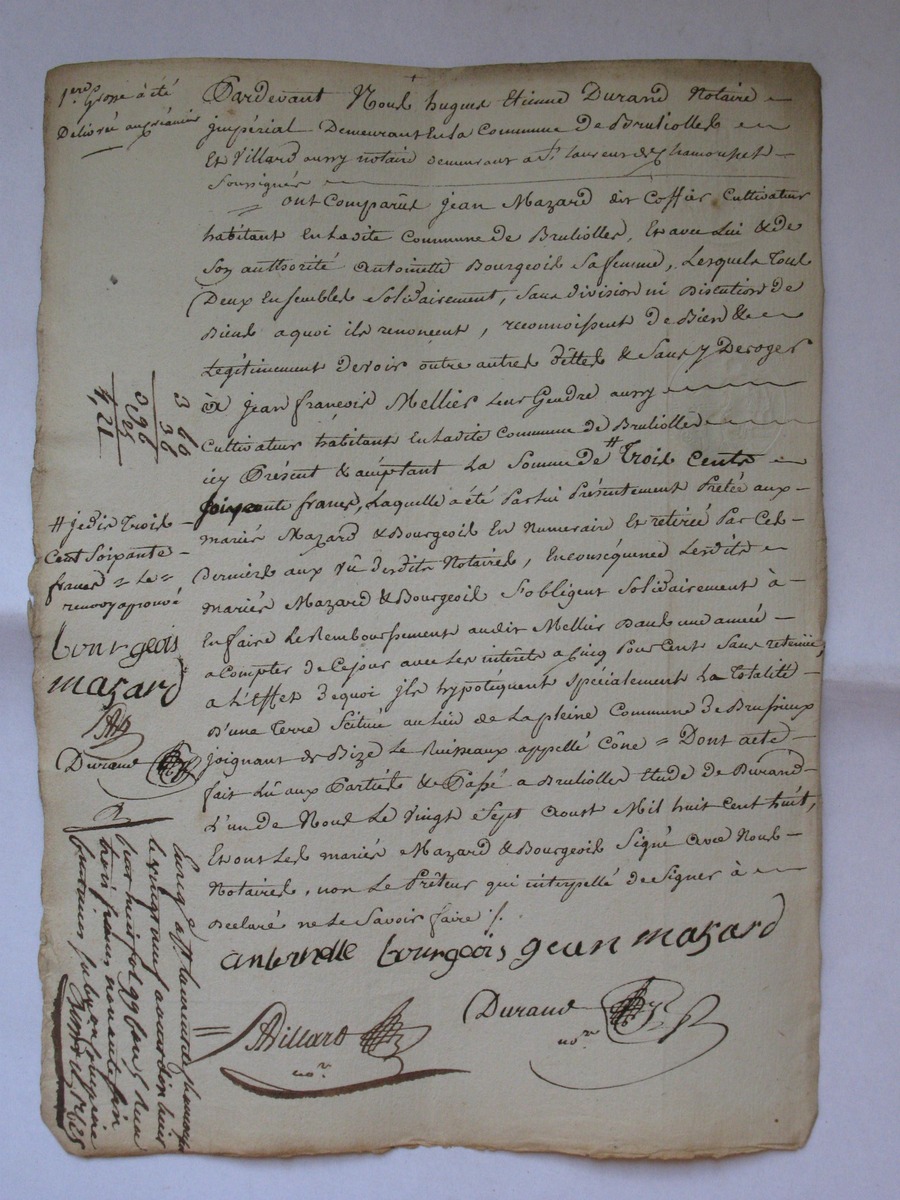 1ere Grosse a été
Delivrée au créancier
Pardevant Nous hugues Etienne Durand Notaire
impérial Demeurant En la Commune De Brullioles
Et Villard aussy notaire demeurant a St laurent de Chamousset
Soussignés
ont Comparûs jean Mazard dit Coffier Cultivateur
habitant En Ladite Commune De Brullioles, Et avec Lui & de
Son authorité Antoinette Bourgeois Sa femme, Lesquels Tous
Deux Ensembles Solidairement, Sans division ni discution De
Biens a quoi ils renoncent, reconnoissent De Bien &
Légitimement devoir outre autres dettes & Sans y Deroger
à jean françois Mellier Leur Gendre aussy
Cultivateur habitant En Ladite Commune De Brullioles
icy Présent & acceptant La Somme de # Trois Cents
Soixante francs, Laquelle a été Par lui Présentement Prêtée aux
mariés Mazard & Bourgeois En Numeraire Et retirée Par Ces
Derniers aux vû desdits Notaires, En conséquence Lesdits
mariés Mazard & Bourgeois S'obligent Solidairement à
En faire Le Remboursement audit Mellier Dans une année
a Compter de Ce jour avec Les intérêts a Cinq Pour Cent Sans retenüe,
a L'Effet De quoi ils hypotéquent Spécialement La Totalité
D'une Terre Scitué au Lieu de La pleine Commune De Brussieux
joignant de Bize Le Ruisseaux appellé Cône = Dont acte
fait Lû aux Parties & Passé a Brullioles Etude de Durand
L'un de Nous Le Vingt Sept Aoust Mil huit Cent huit,
Et ont Les mariés Mazard & Bourgeois Signé avec Nous
Notaires, non Le Prêteur qui interpellé de Signer à
Declaré ne Le Savoir faire ./.
antoinette bourgeois jean mazard
Villard
nore
Durand
nore
3 60
36
3 96
25
4,21
# je dis Trois
Cent Soixante
francs = Le =
renvoy approuvé
bourgeois
mazard
Durand
Enreg a St laurent de chamousset
le vingt neuf aout dix huit
cent huit fol 99
trois francs nonante six
centimes